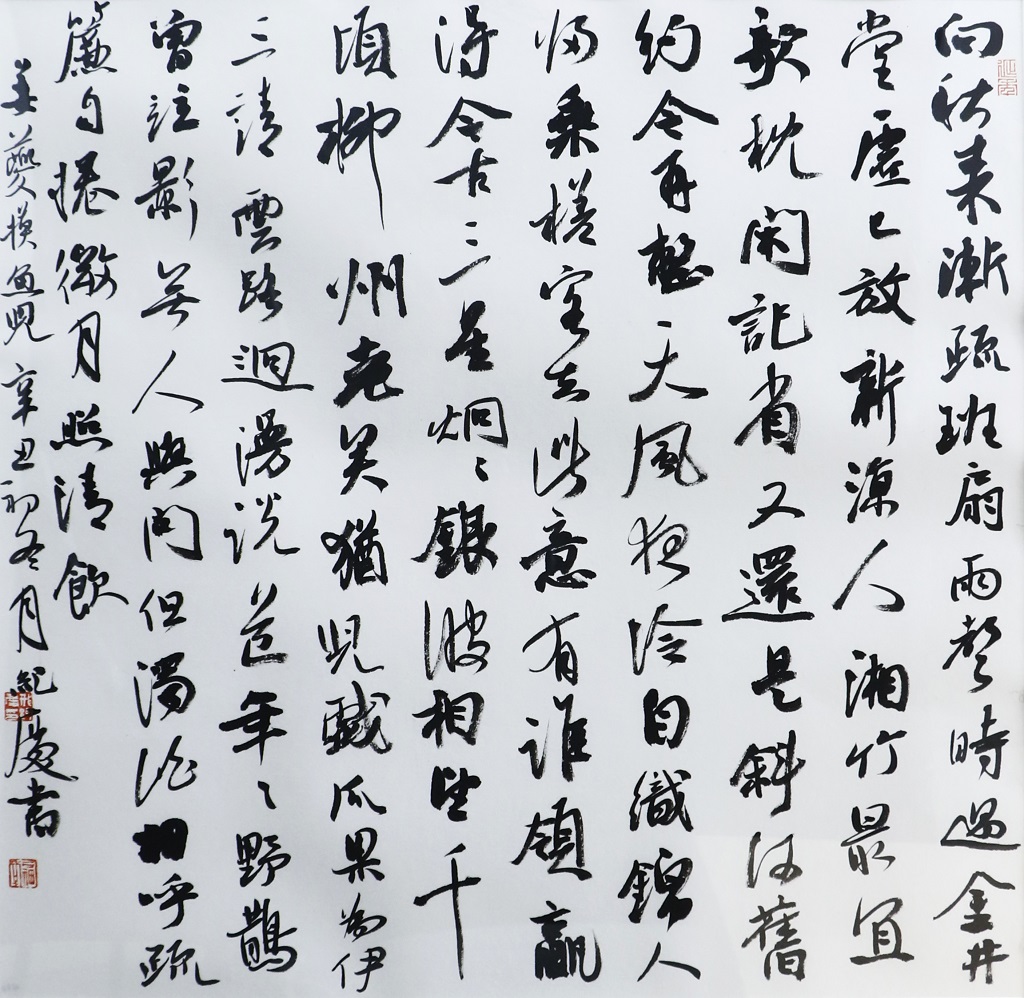 向秋来漸疏班扇雨聲時過金井
堂虛已放新涼人湘竹最宜
欹枕閑記省又還是斜河舊
約今再整天風夜冷自織錦人
歸乘槎客去此意有誰領贏
得今古三星炯々銀波相望千
頃柳州老矣猶兒戲瓜果為伊
三請雲路迥漫說道年々野鵲
曾註影無人與問但濁酒相呼疏
簾自捲微月照清飲
姜夔摸魚兒辛丑初冬月紀慶書